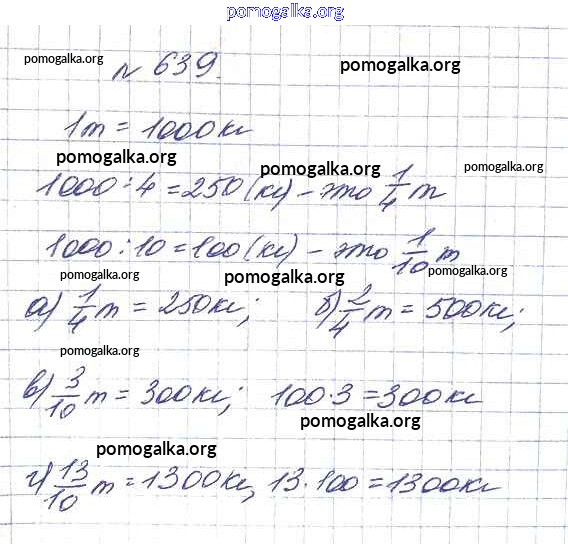 pomogalka.org
pomogalka.org № 639. pomogalka.org
1т = 1000кг
pomogalka.org pomogalka.org pomogalka.org
1000:4 = 250(кг) – это 1/4 т
1000:10 = 100(кг) – это 1/10 т
pomogalka.org pomogalka.org pomogalka.org
а) 1/4 т = 250кг; б) 2/4 т = 500кг;
pomogalka.org
в) 3/10 т = 300кг; 100·3 = 300кг
pomogalka.org
pomogalka.org
г) 13/10 т = 1300кг, 13·100 = 1300кг